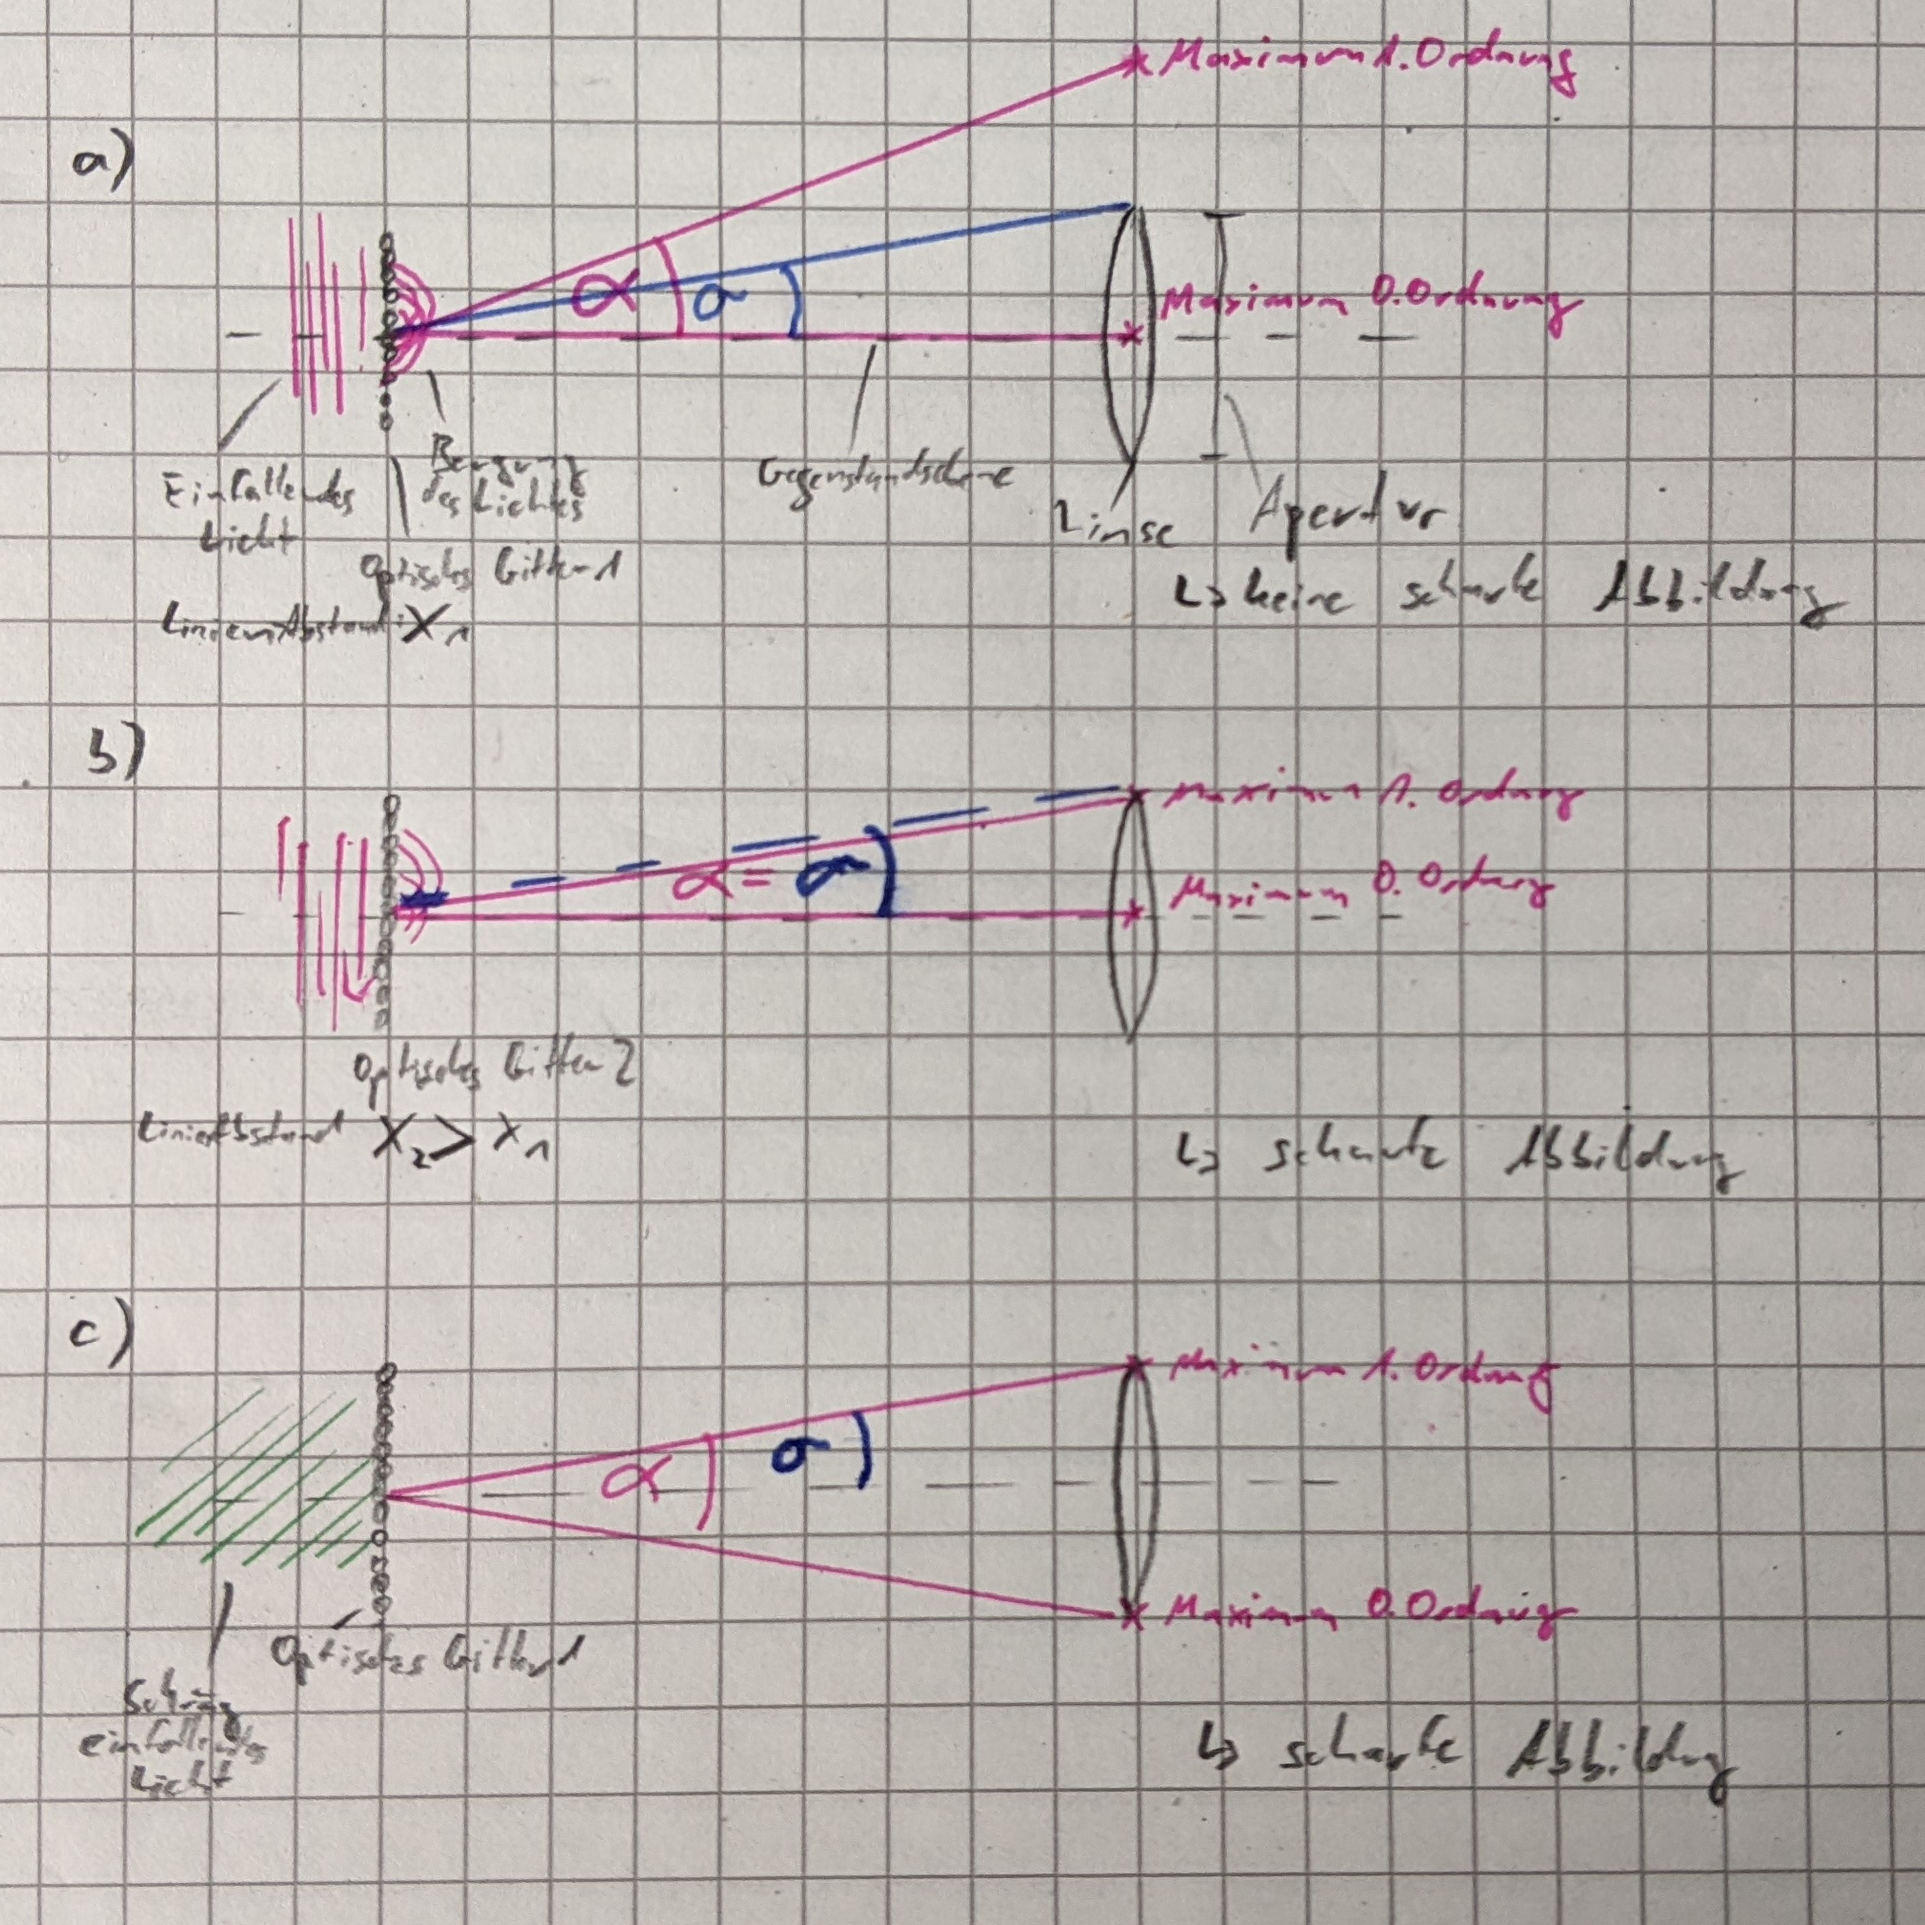 Maximum 1. Ordnung
a)
α σ
Maximum 0. Ordnung
Einfallendes
Licht
Beugung
des Lichtes
Gegenstandsebene
Linse
Apertur
Optisches Gitter 1
Linienabstand: X₁
↳ keine scharfe Abbildung
b)
Maximum 1. Ordnung
α = σ
Maximum 0. Ordnung
Optisches Gitter 2
Linienabstand X₂ > X₁
↳ scharfe Abbildung
c)
Maximum 1. Ordnung
α σ
Maximum 0. Ordnung
Optisches Gitter 1
Schräg
einfallendes
Licht
↳ scharfe Abbildung